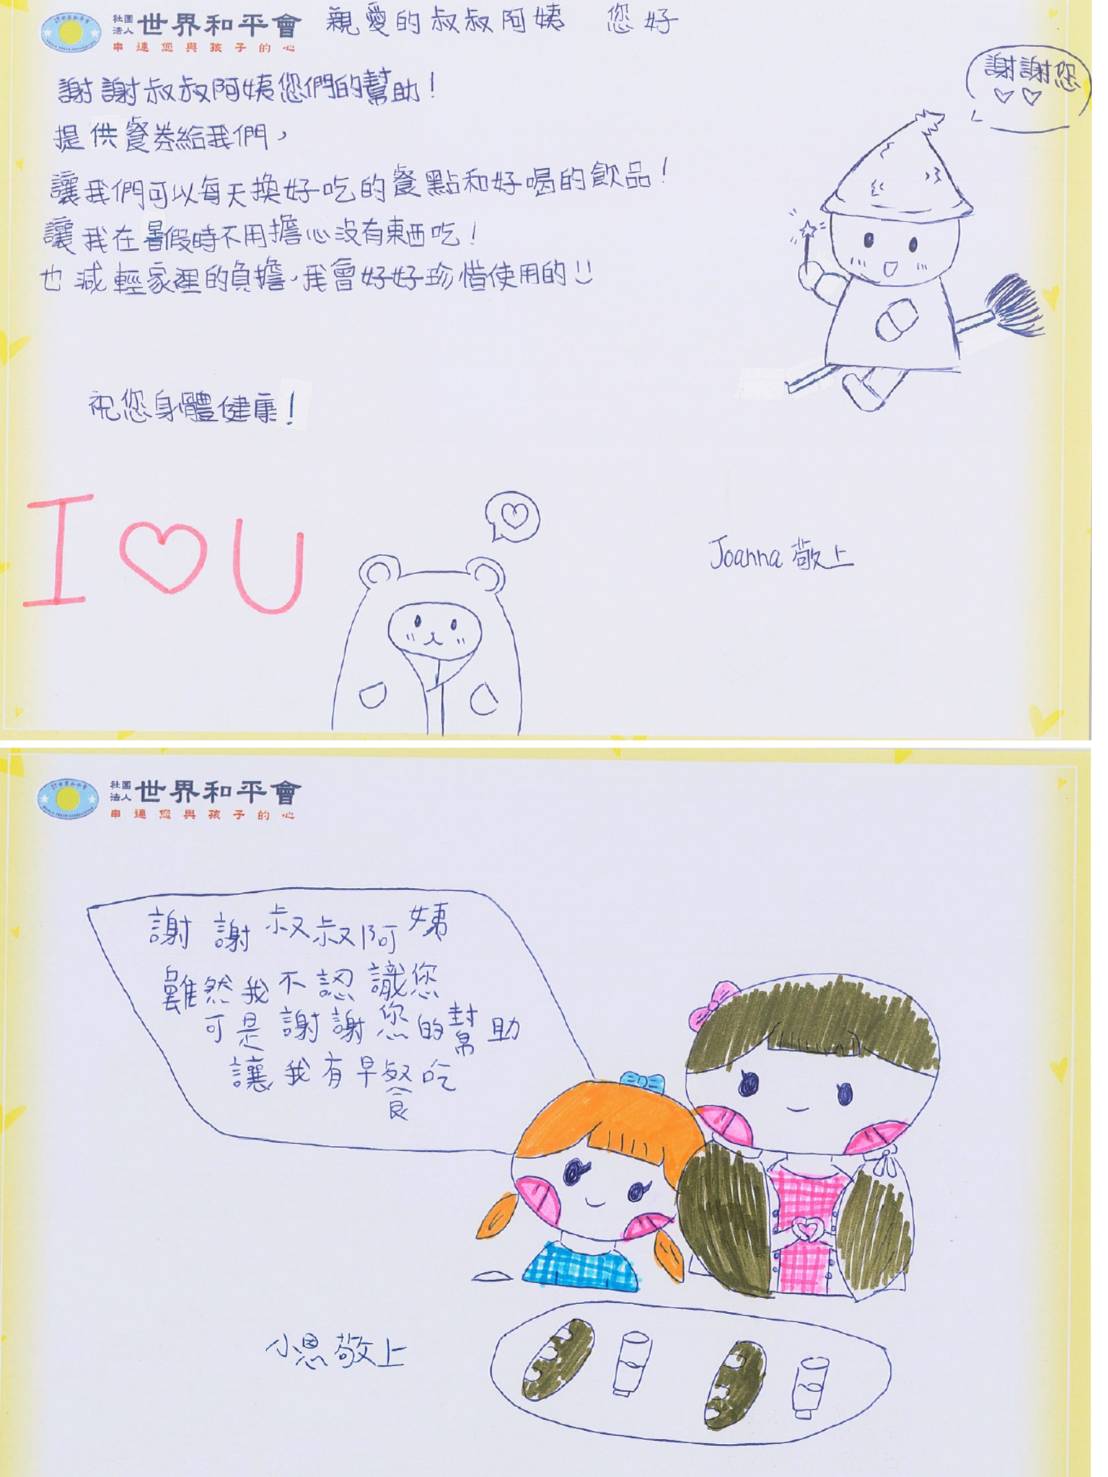 社團法人 世界和平會
串連您與孩子的心
親愛的叔叔阿姨 您好
謝謝叔叔阿姨您們的幫助！
提供餐券給我們，
讓我們可以每天換好吃的餐點和好喝的飲品！
讓我在暑假時不用擔心沒有東西吃！
也減輕家裡的負擔，我會好好珍惜使用的!!
謝謝您
♡♡
祝您身體健康！
I ♡ U
Joanna 敬上
社團法人 世界和平會
串連您與孩子的心
謝謝叔叔阿姨
雖然我不認識您
可是謝謝您的幫助
讓我有早餐吃
小恩敬上